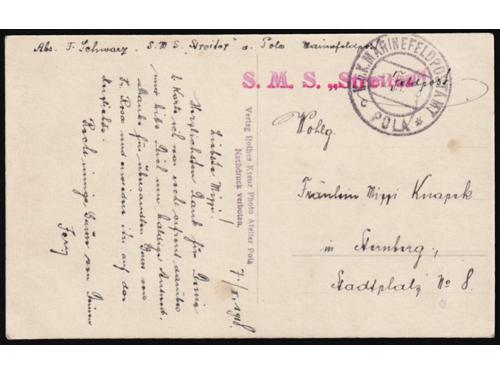 Abs. F. Schwarz. S.M.S. "Streiter" a. Pola Marinefeldpost
S. M. S. „Streiter"
K.u.K. MARINEFELDPOSTAMT
POLA
Feldpost
Wohlg.
Fräulein Mizzi Knapek
in Sternberg,
Stadtplatz No 8.
Verlag Rothes Kreuz Photo Atelier Pola
Nachdruck verboten.
7/X. 1918
Liebste Mizzi!
Herzlichsten Dank für Deine
l. Karte ich war sehr erfreut darüber
und bitte Dich um baldige Antwort.
Danke für übersandten Gruss von
Frl. Rosa und erwiedere ihn auf das
herzlichste.
Recht innige Grüsse von Deinem
Ferry